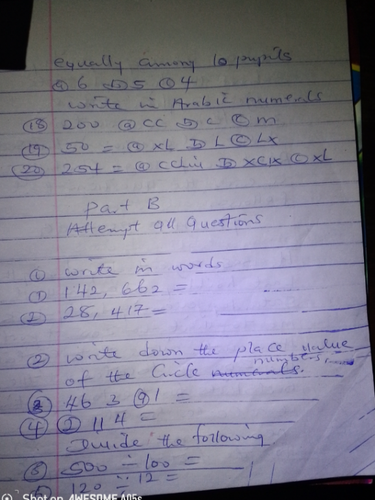 equally among 10 pupils
ⓐ 6 ⓑ 5 ⓒ 4
write in Arabic numerals
⑱ 200 ⓐ CC ⓑ C ⓒ m
⑲ 50 = ⓐ XL ⓑ L ⓒ LX
⑳ 254 = ⓐ CCLiv ⓑ XCIX ⓒ XL
Part B
Attempt all Questions
① write in words
① 142, 662 =
② 28, 417 =
② write down the place value
of the Circle numbers.
③ 46 3 ⑨ 1 =
④ ② 114 =
Divide the following
⑤ 500 ÷ 100 =
120 ÷ 12 =
Shot on AWESOME A05s